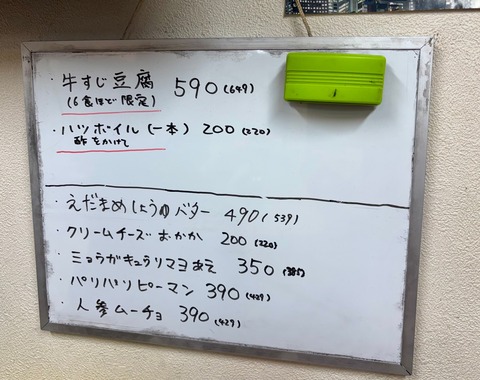 ・牛すじ豆腐 590(649)
(6食ほど限定)
・ハツボイル(一本) 200(220)
酢をかけて
・えだまめしょうゆバター 490(539)
・クリームチーズおかか 200(220)
・ミョウガキュウリマヨあえ 350(385)
・パリパリピーマン 390(429)
・人参ムーチョ 390(429)